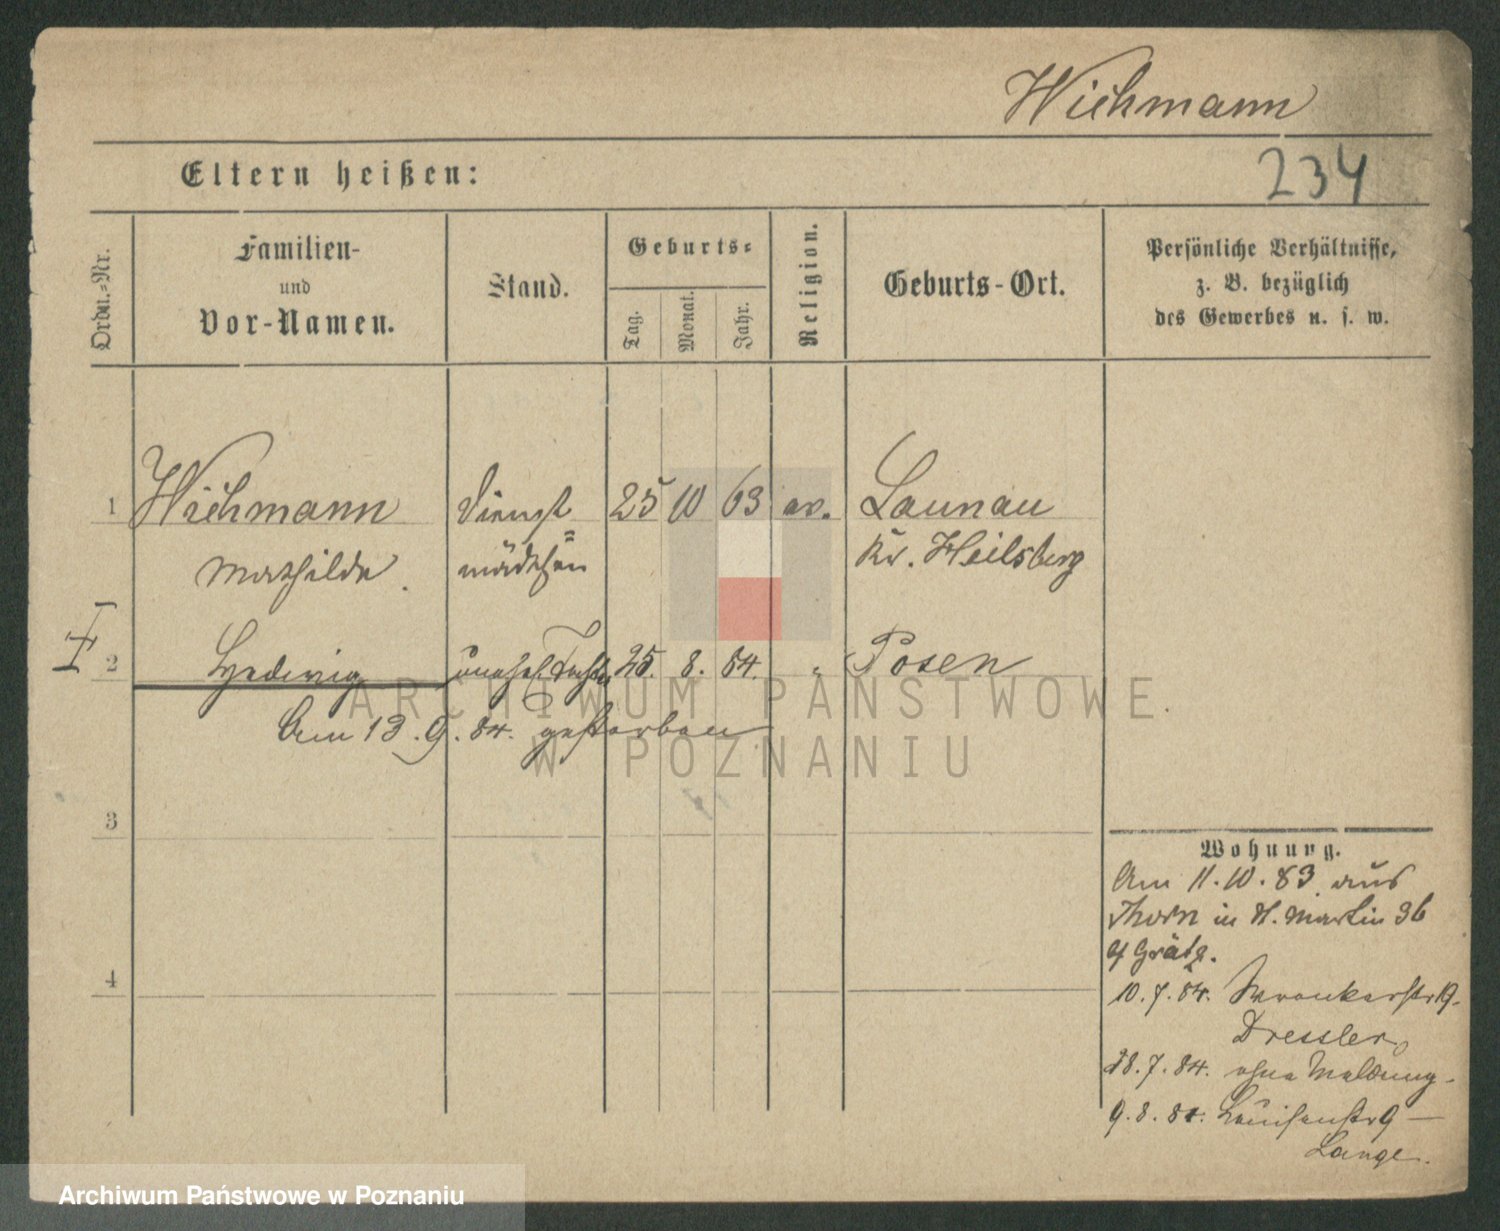 Wichmann
234
Eltern heißen:
Ordn.-Nr.
Familien-
und
Vor-Namen.
Stand.
Geburts-
Tag.
Monat.
Jahr.
Religion.
Geburts-Ort.
Persönliche Verhältnisse,
z. B. bezüglich
des Gewerbes u. s. w.
1 Wichmann Dienst 25 10 63 ev. Launau
Mathilde mädchen Kr. Heilsberg
2 Hedwig unehel. Tochter 25. 8. 84. " Posen
Am 13.9.84. gestorben
3
4
Wohnung.
Am 11.10.83 aus
Thorn in St. Martin 36
Grätz.
10.7.84. Wronkerstr 19.
Dressler
28.7.84. ohne Meldung.
9.8.84. Louisenstr 9 —
Lange.
ARCHIWUM PAŃSTWOWE
W POZNANIU
Archiwum Państwowe w Poznaniu